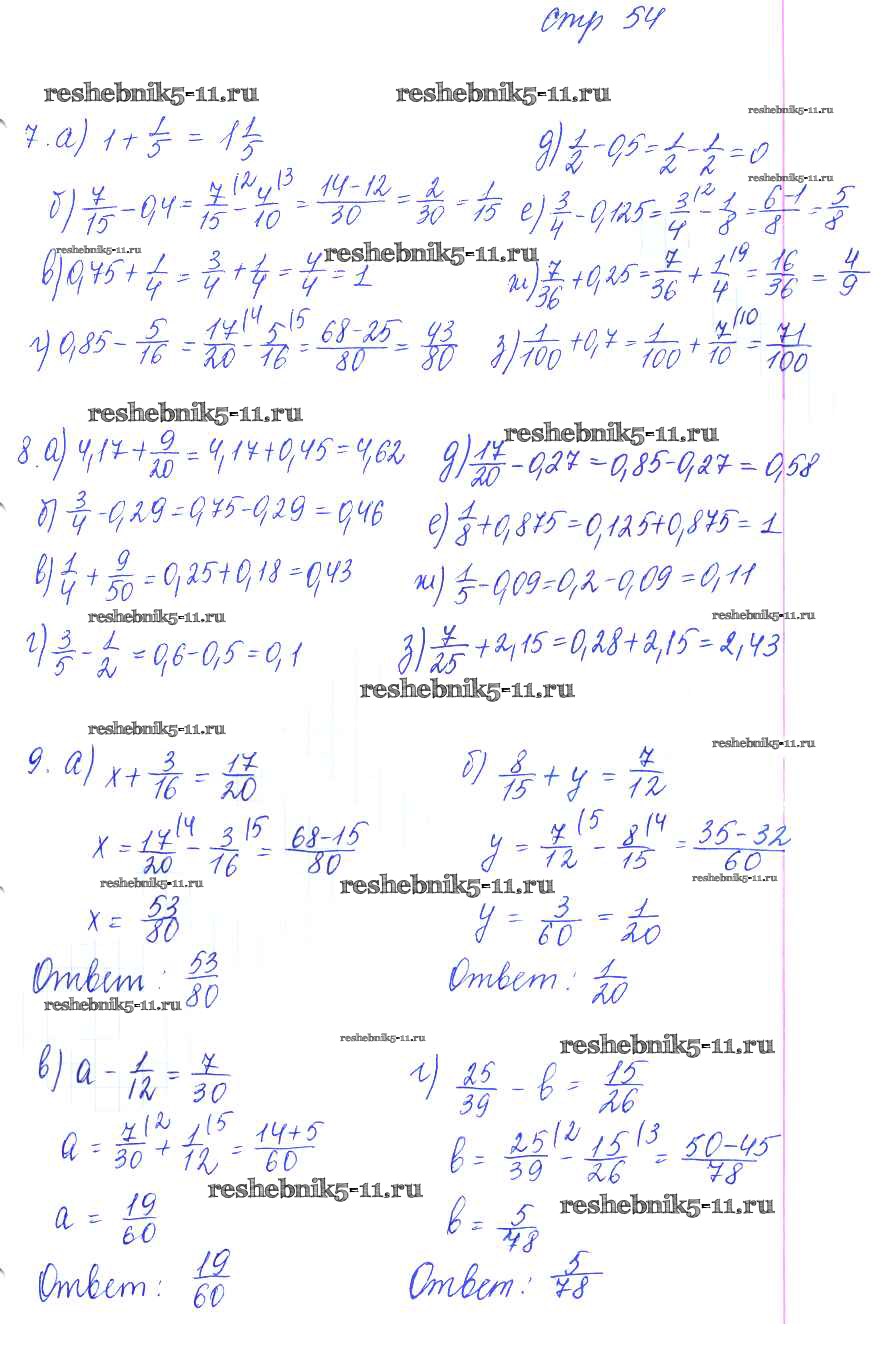 стр 54
reshebnik5-11.ru reshebnik5-11.ru reshebnik5-11.ru
7. а) 1 + 1/5 = 1 1/5 д) 1/2 - 0,5 = 1/2 - 1/2 = 0
б) 7/15 - 0,4 = 7/15 (2 - 4/10 (3 = (14-12)/30 = 2/30 = 1/15 е) 3/4 - 0,125 = 3/4 (2 - 1/8 = (6-1)/8 = 5/8
reshebnik5-11.ru reshebnik5-11.ru
в) 0,75 + 1/4 = 3/4 + 1/4 = 4/4 = 1 ж) 7/36 + 0,25 = 7/36 + 1/4 (9 = 16/36 = 4/9
г) 0,85 - 5/16 = 17/20 (4 - 5/16 (5 = (68-25)/80 = 43/80 з) 1/100 + 0,7 = 1/100 + 7/10 (10 = 71/100
reshebnik5-11.ru reshebnik5-11.ru
8. а) 4,17 + 9/20 = 4,17 + 0,45 = 4,62 д) 17/20 - 0,27 = 0,85 - 0,27 = 0,58
б) 3/4 - 0,29 = 0,75 - 0,29 = 0,46 е) 1/8 + 0,875 = 0,125 + 0,875 = 1
в) 1/4 + 9/50 = 0,25 + 0,18 = 0,43 ж) 1/5 - 0,09 = 0,2 - 0,09 = 0,11
reshebnik5-11.ru reshebnik5-11.ru
г) 3/5 - 1/2 = 0,6 - 0,5 = 0,1 з) 7/25 + 2,15 = 0,28 + 2,15 = 2,43
reshebnik5-11.ru
reshebnik5-11.ru reshebnik5-11.ru
9. а) x + 3/16 = 17/20 б) 8/15 + y = 7/12
x = 17/20 (4 - 3/16 (5 = (68-15)/80 y = 7/12 (5 - 8/15 (4 = (35-32)/60
reshebnik5-11.ru reshebnik5-11.ru reshebnik5-11.ru
x = 53/80 y = 3/60 = 1/20
Ответ: 53/80 Ответ: 1/20
reshebnik5-11.ru
reshebnik5-11.ru reshebnik5-11.ru
в) a - 1/12 = 7/30 г) 25/39 - в = 15/26
a = 7/30 (2 + 1/12 (5 = (14+5)/60 в = 25/39 (2 - 15/26 (3 = (50-45)/78
reshebnik5-11.ru reshebnik5-11.ru
a = 19/60 в = 5/78
Ответ: 19/60 Ответ: 5/78